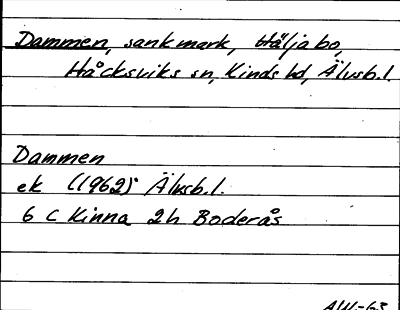 Dammen, sankmark, Häljabo,
Håcksviks sn, Kinds hd, Älvsb.l.
Dammen
ek (1962): Älvsb.l.
6 C Kinna 2h Boderås